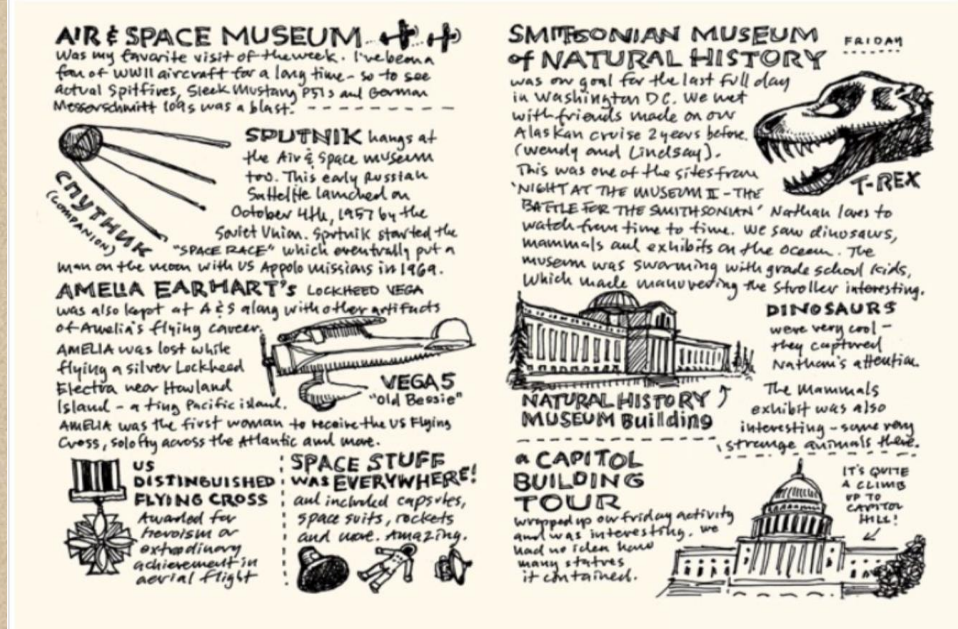 AIR & SPACE MUSEUM
was my favorite visit of the week. I've been a
fan of WWII aircraft for a long time - so to see
actual Spitfires, Sleek Mustang P51s and German
Messerschmitt 109s was a blast.
SPUTNIK hangs at
the Air & Space museum
too. This early Russian
Satellite launched on
October 4th, 1957 by the
Soviet Union. Sputnik started the
"SPACE RACE" which eventually put a
man on the moon with US Appolo missions in 1969.
СПУТНИК
(COMPANION)
AMELIA EARHART's LOCKHEED VEGA
was also kept at A & S along with other artifacts
of Amelia's flying career.
AMELIA was lost while
flying a silver Lockheed
Electra near Howland
Island - a tiny Pacific island.
AMELIA was the first woman to receive the US Flying
Cross, solo fly across the Atlantic and more.
VEGA 5
"old Bessie"
US
DISTINGUISHED
FLYING CROSS
Awarded for
heroism or
extraodinary
achievement in
aerial flight
SPACE STUFF
was EVERYWHERE!
and included capsules,
space suits, rockets
and more. Amazing.
SMITHSONIAN MUSEUM
of NATURAL HISTORY
FRIDAY
was our goal for the last full day
in Washington D.C. We met
with friends made on our
Alaskan cruise 2 years before.
(Wendy and Lindsay).
This was one of the sites from
'NIGHT AT THE MUSEUM II - THE
BATTLE FOR THE SMITHSONIAN' Nathan loves to
watch from time to time. We saw dinosaurs,
mammals and exhibits on the ocean. The
museum was swarming with grade school kids,
which made manuvering the stroller interesting.
T-REX
DINOSAURS
were very cool -
they captured
Nathan's attention.
The Mammals
exhibit was also
interesting - some very
strange animals there.
NATURAL HISTORY
MUSEUM Building
a CAPITOL
BUILDING
TOUR
wrapped up our friday activity
and was interesting. we
had no idea how
many statues
it contained.
IT'S QUITE
A CLIMB
UP TO
CAPITOL
HILL!